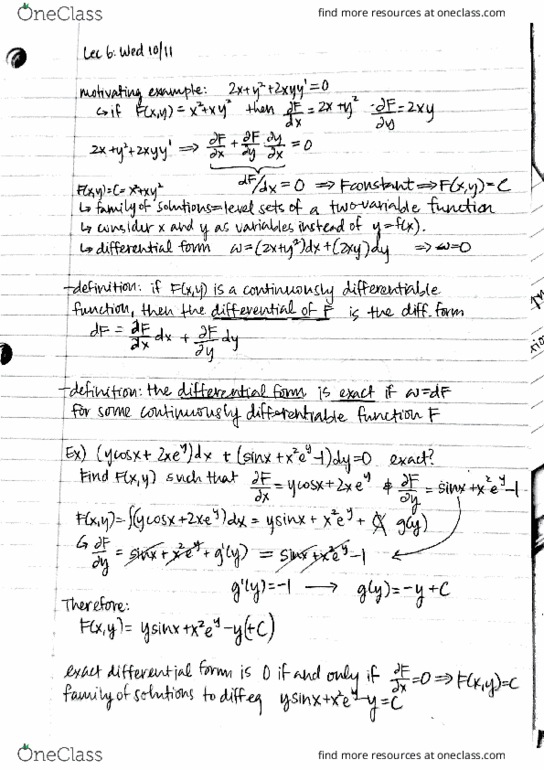 OneClass
find more resources at oneclass.com
Lec 6: Wed 10/11
motivating example: 2x+y²+2xyy'=0
↳ if F(x,y) = x²+xy² then ∂F/∂x = 2x+y² · ∂F/∂y = 2xy
2x+y²+2xyy' ⇒ ∂F/∂x + ∂F/∂y ∂y/∂x = 0
dF/dx = 0 ⇒ F constant ⇒ F(x,y) = C
F(x,y)=C=x²+xy²
↳ family of solutions = level sets of a two-variable function
↳ consider x and y as variables instead of y=f(x).
↳ differential form ω=(2x+y²)dx+(2xy)dy ⇒ ω=0
-definition: if F(x,y) is a continuously differentiable
function, then the differential of F is the diff. form
dF = ∂F/∂x dx + ∂F/∂y dy
-definition: the differential form is exact if ω=dF
for some continuously differentiable function F
Ex) (ycosx + 2xe^y)dx + (sinx+x²e^y-1)dy=0 exact?
Find F(x,y) such that ∂F/∂x = ycosx+2xe^y & ∂F/∂y = sinx+x²e^y-1
F(x,y)=∫(ycosx+2xe^y)dx = ysinx + x²e^y + g(y)
↳ ∂F/∂y = sinx+x²e^y+g'(y) = sinx+x²e^y-1
g'(y)=-1 → g(y)=-y+C
Therefore:
F(x,y)= ysinx+x²e^y-y(+C)
exact differential form is 0 if and only if ∂F/∂x=0 ⇒ F(x,y)=C
family of solutions to diffeq ysinx+x²e^y-y=C
OneClass
find more resources at oneclass.com